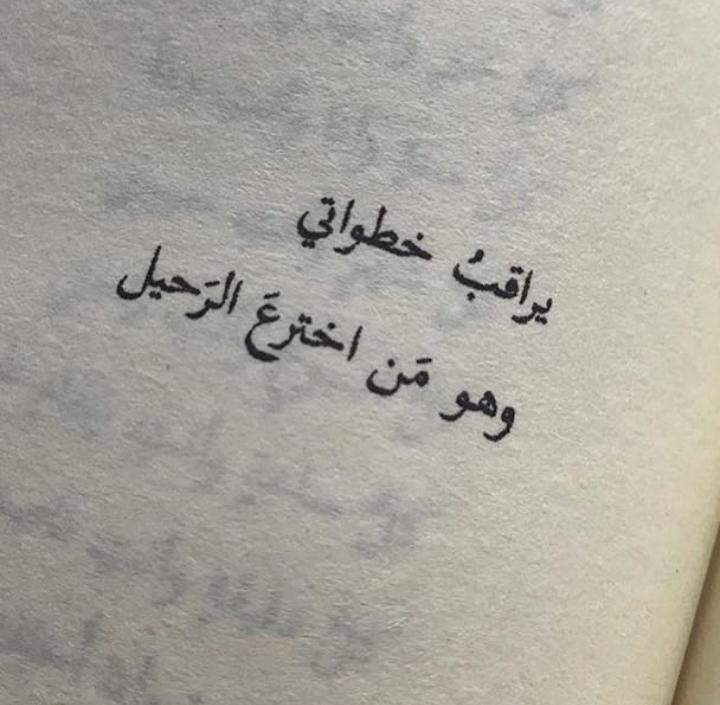 يراقبُ خطواتي
وهو مَن اخترعَ الرَحيل